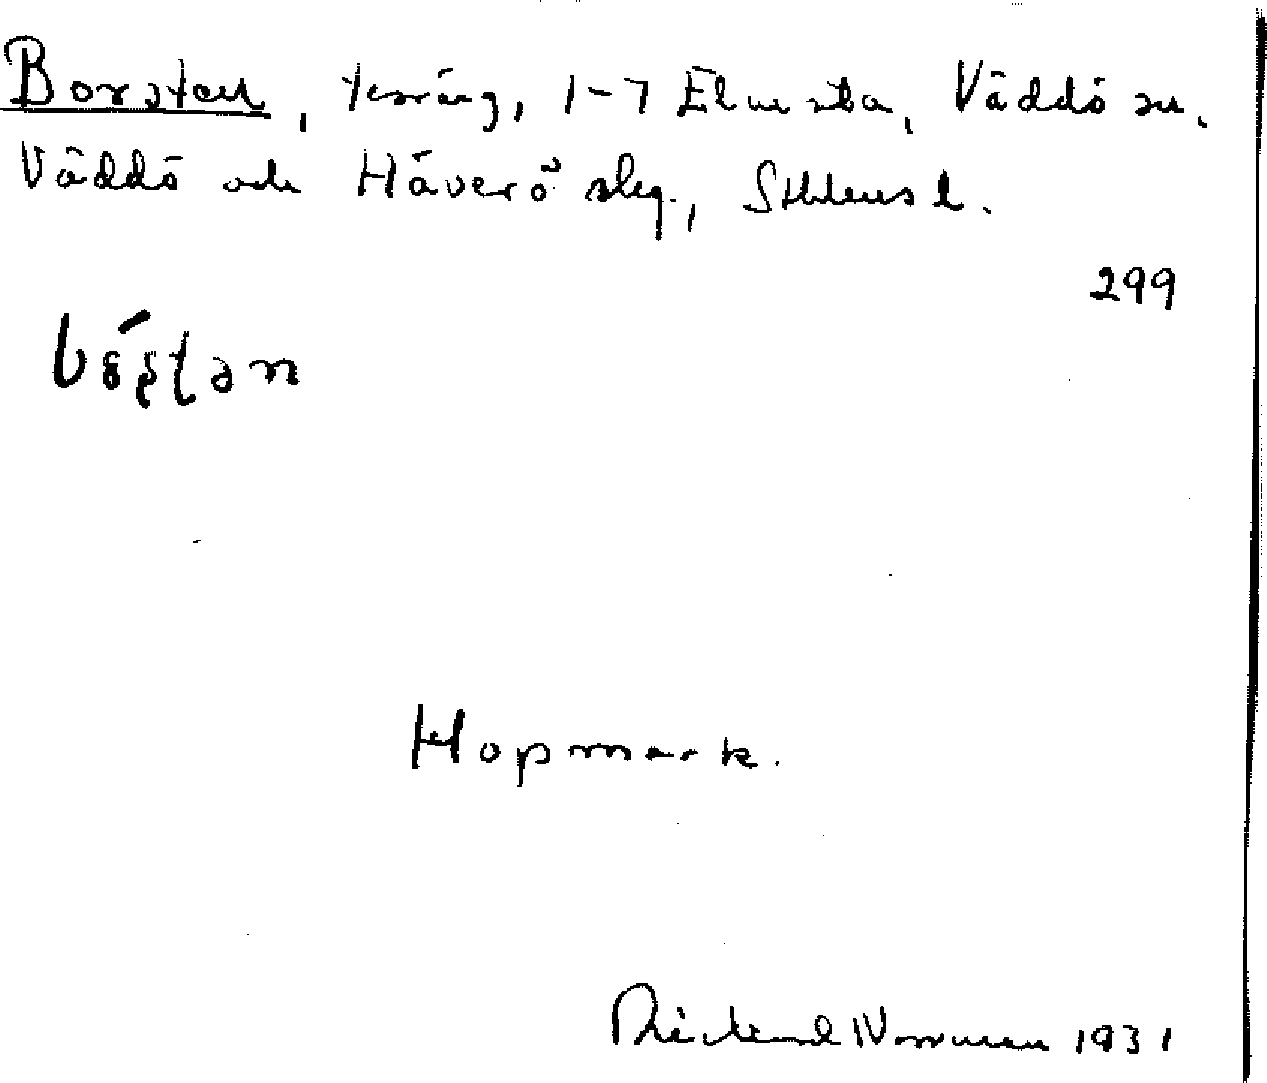 Borsten, terräng, 1-7 Elmsta, Väddö sn.
Väddö och Häverö skg., Sthlms l.
299
Hopmark.
Rickard Norrman 1931